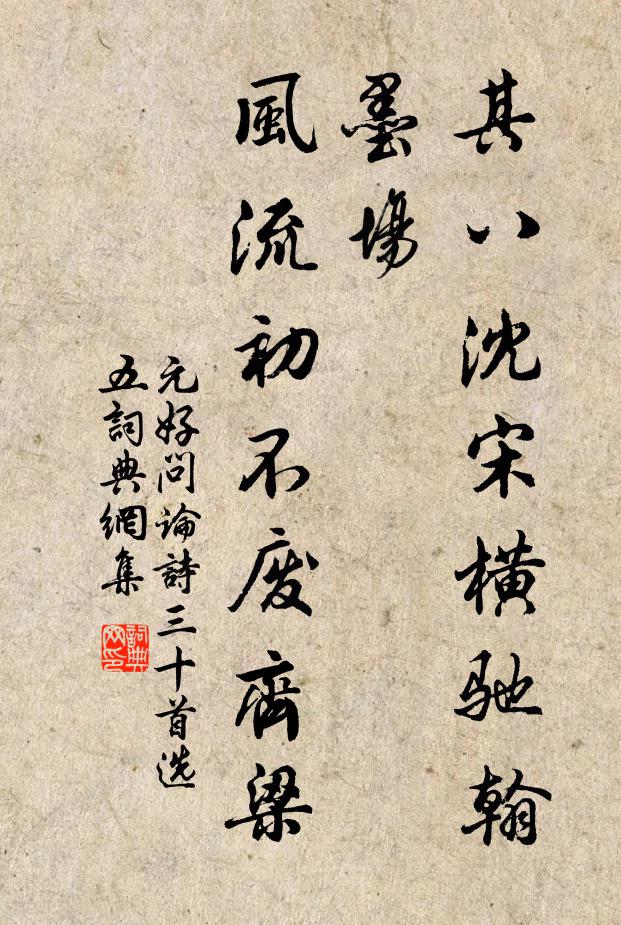 其八沈宋橫馳翰
墨場
風流初不废齊梁
元好问論詩三十首选
五詞典網集
詞典网印